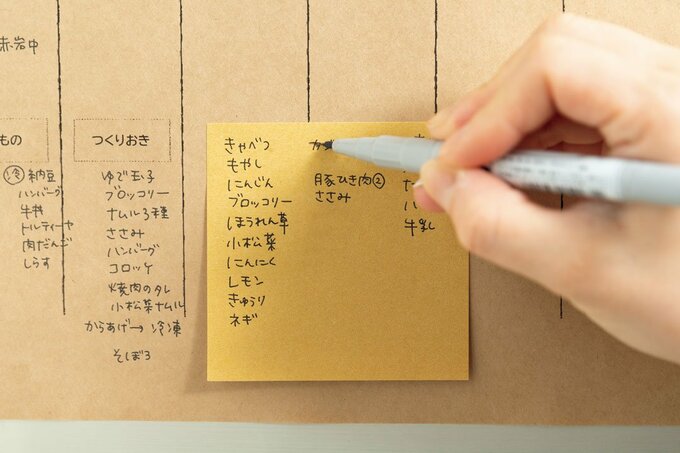 赤岩中
もの
冷 納豆
ハンバーグ
牛丼
トルティーヤ
肉だんご
しらす
つくりおき
ゆで玉子
ブロッコリー
ナムル3種
ささみ
ハンバーグ
コロッケ
焼肉のタレ
小松菜ナムル
からあげ→冷凍
そぼろ
きゃべつ
もやし
にんじん
ブロッコリー
ほうれん草
小松菜
にんにく
レモン
きゅうり
ネギ
豚ひき肉②
ささみ
牛乳